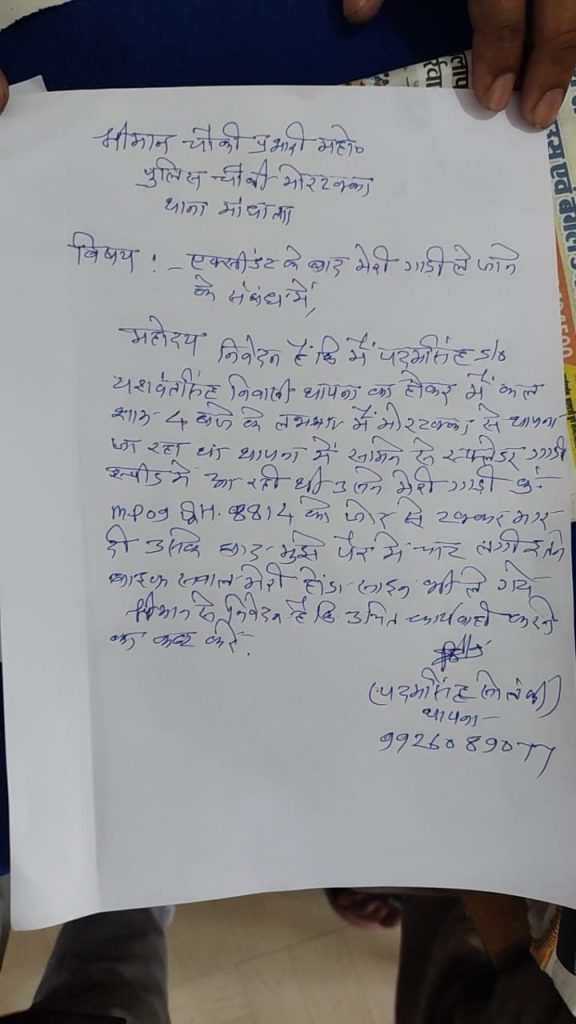 श्रीमान चौकी प्रभारी महो०
पुलिस चौकी मोरटक्का
थाना मांधाता
विषय :- एक्सीडेंट के बाद मेरी गाडी ले जाने
के संबंध में,
महोदय निवेदन है कि मैं पदमसिंह S/o
यशवंतसिंह निवासी थापना का होकर में कल
शाम 4 बजे के लगभग में मोरटक्का से थापना
जा रहा था थापना में सामने से स्पलेंडर गाडी
स्पीड में आ रही थी उसने मेरी गाडी
MP09 QH. 8814 को जोर से टक्कर मार
दी उसके बाद मुझे पैर में चोट लगी इतने
बाइक वाले मेरी होंडा साइन भी ले गये
श्रीमान से निवेदन है कि उचित कार्यवाही करने
का कष्ट करें.
(पदमसिंह सोलंकी)
थापना
9926089077